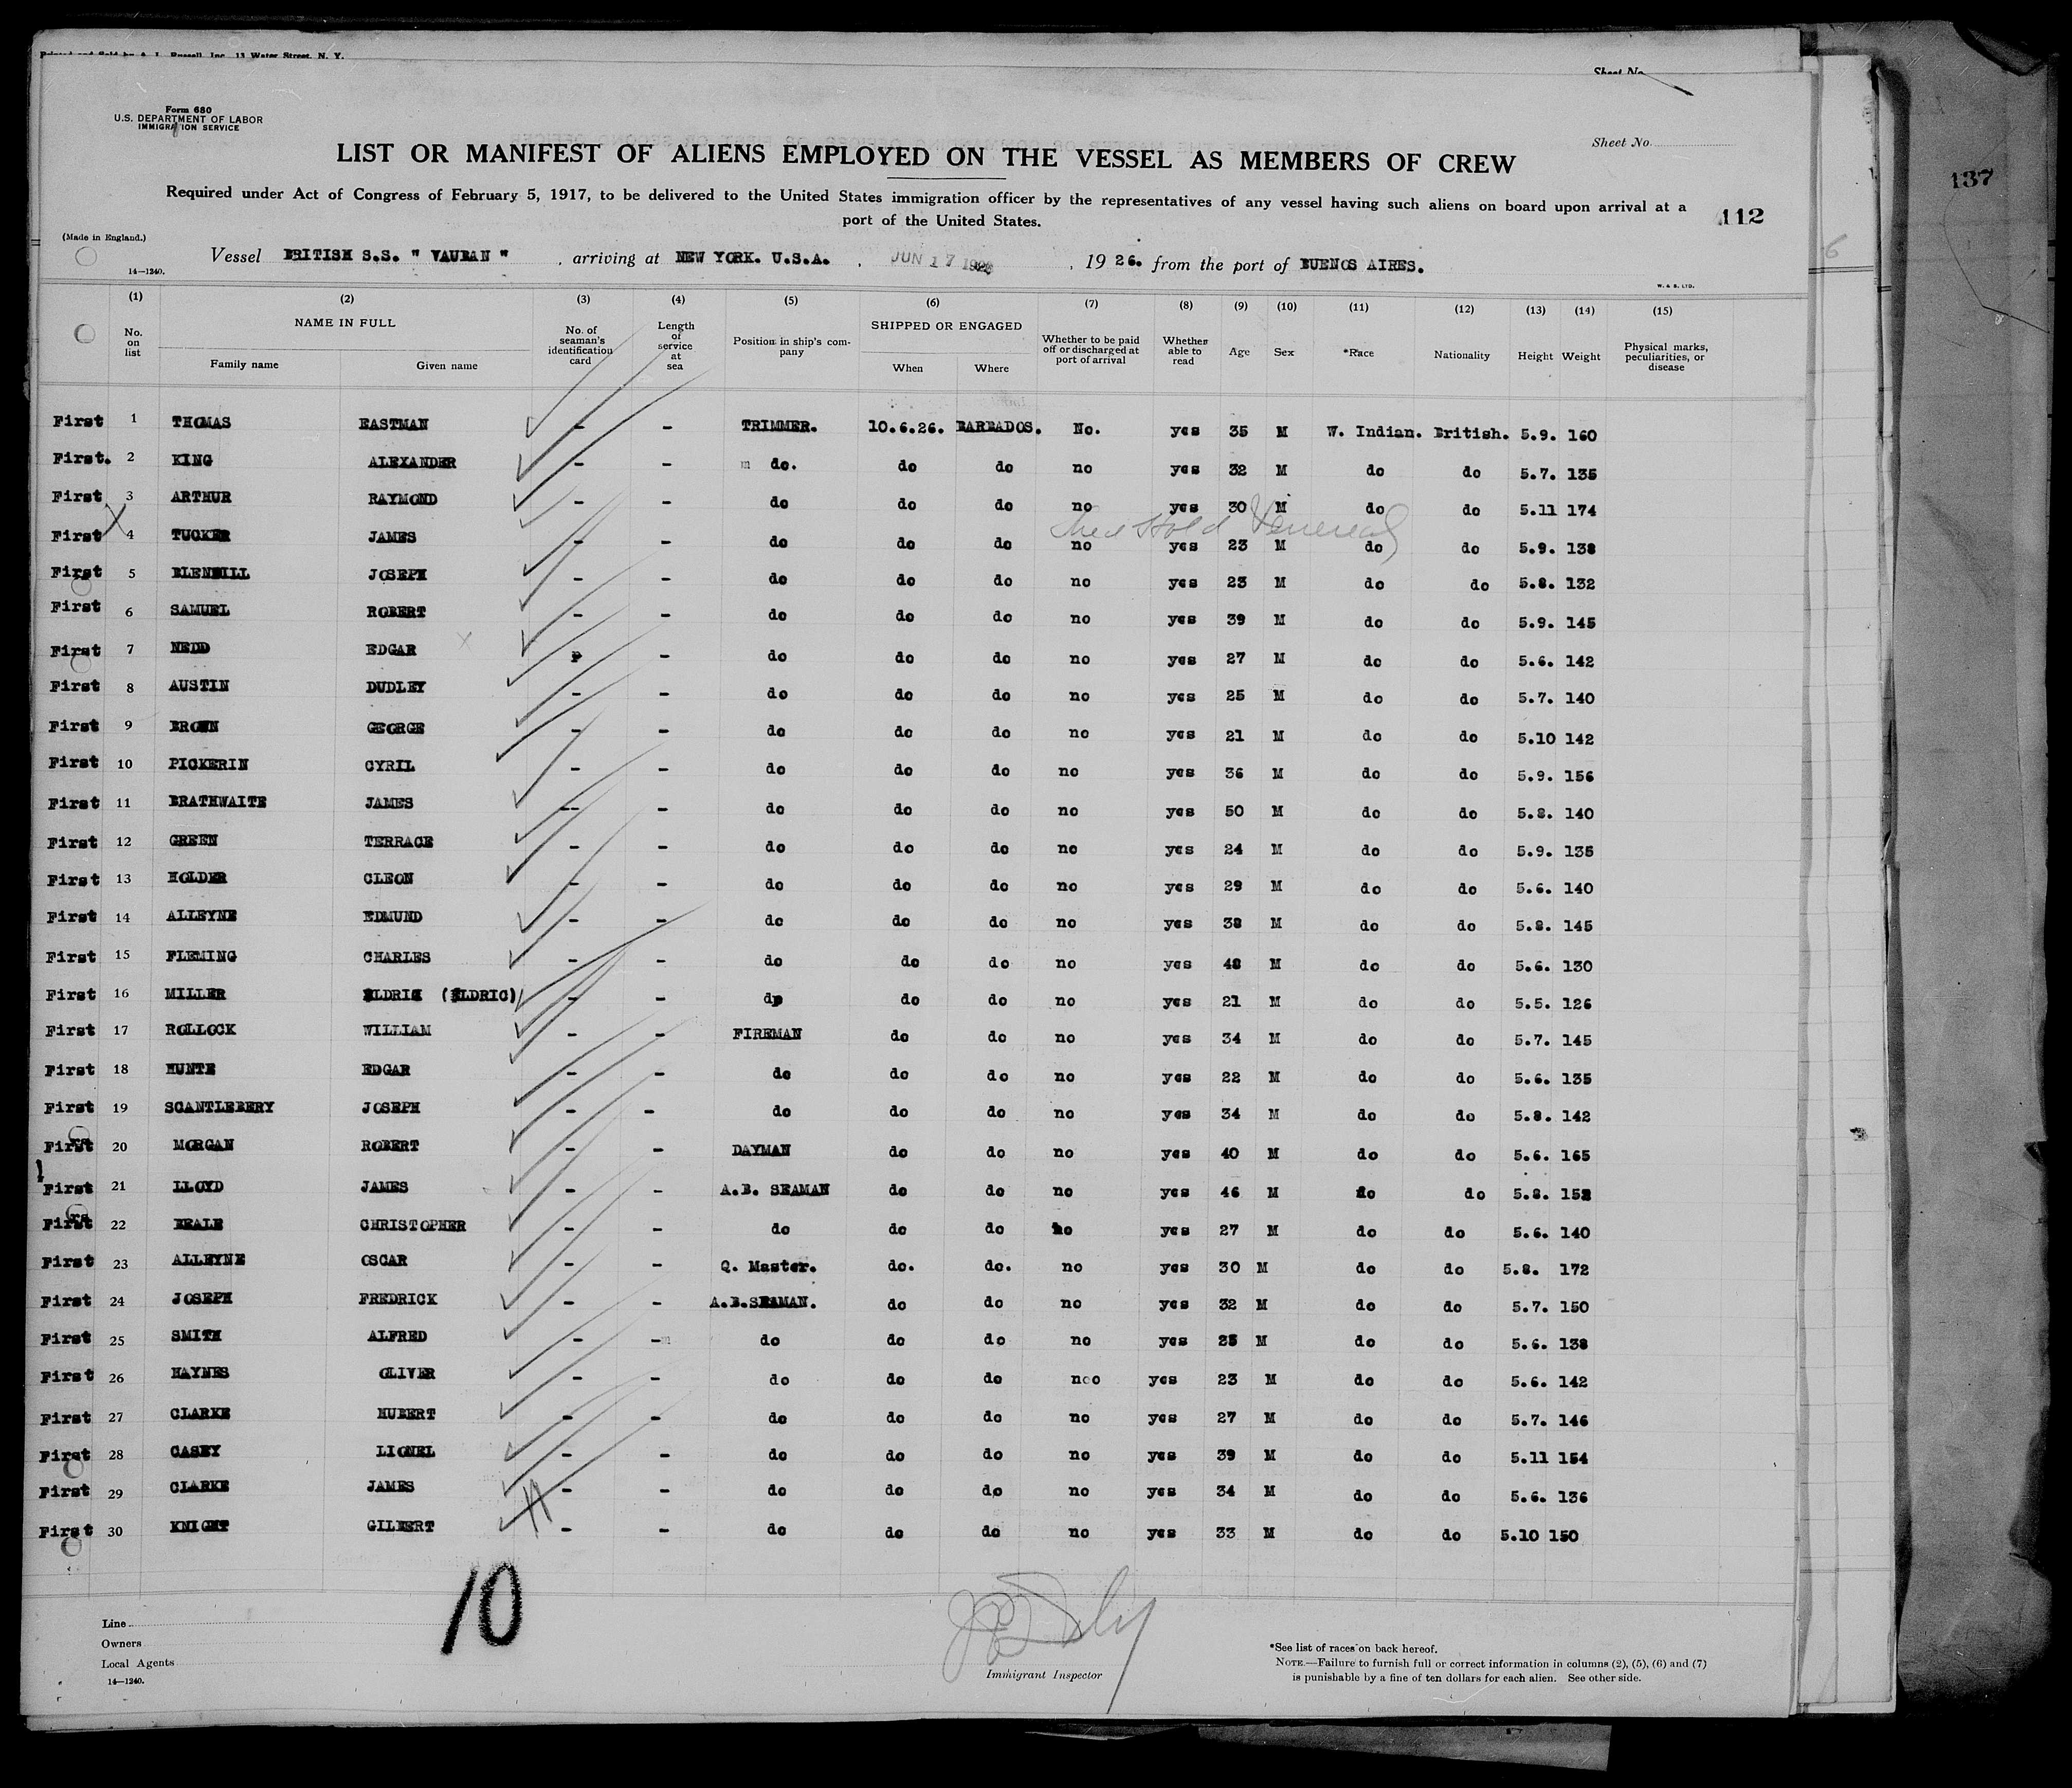 Sheet No
Form 680
U.S. DEPARTMENT OF LABOR
IMMIGRATION SERVICE
Sheet No.
LIST OR MANIFEST OF ALIENS EMPLOYED ON THE VESSEL AS MEMBERS OF CREW
Required under Act of Congress of February 5, 1917, to be delivered to the United States immigration officer by the representatives of any vessel having such aliens on board upon arrival at a
port of the United States.
112
137
(Made in England.)
Vessel BRITISH S.S. " VAUBAN " , arriving at NEW YORK. U.S.A. , JUN 17 1926 , 19 26. from the port of BUENOS AIRES.
14—1240.
W. & S. LTD.
(1) (2) (3) (4) (5) (6) (7) (8) (9) (10) (11) (12) (13) (14) (15)
No. on list NAME IN FULL Family name Given name No. of seaman's identification card Length of service at sea Position in ship's company SHIPPED OR ENGAGED When Where Whether to be paid off or discharged at port of arrival Whether able to read Age Sex *Race Nationality Height Weight Physical marks, peculiarities, or disease
First 1 THOMAS EASTMAN - - TRIMMER. 10.6.26. BARBADOS. No. yes 35 M W. Indian. British. 5.9. 160
First. 2 KING ALEXANDER - - do. do do no yes 32 M do do 5.7. 135
First 3 ARTHUR RAYMOND - - do do do no yes 30 M do do 5.11 174
Hold Venereal
First 4 TUCKER JAMES - - do do do no yes 23 M do do 5.9. 138
First 5 BLENHILL JOSEPH - - do do do no yes 23 M do do 5.8. 132
First 6 SAMUEL ROBERT - - do do do no yes 39 M do do 5.9. 145
First 7 NEDD EDGAR - do do do no yes 27 M do do 5.6. 142
First 8 AUSTIN DUDLEY - - do do do no yes 25 M do do 5.7. 140
First 9 BROWN GEORGE - - do do do no yes 21 M do do 5.10 142
First 10 PICKERIN CYRIL - - do do do no yes 36 M do do 5.9. 156
First 11 BRATHWAITE JAMES -- - do do do no yes 50 M do do 5.8. 140
First 12 GREEN TERRACE - - do do do no yes 24 M do do 5.9. 135
First 13 HOLDER CLEON - - do do do no yes 29 M do do 5.6. 140
First 14 ALLEYNE EDMUND - - do do do no yes 38 M do do 5.8. 145
First 15 FLEMING CHARLES - - do do do no yes 48 M do do 5.6. 130
First 16 MILLER ELDRIC (ELDRIC) - - do do do no yes 21 M do do 5.5. 126
First 17 ROLLOCK WILLIAM - - FIREMAN do do no yes 34 M do do 5.7. 145
First 18 HUNTE EDGAR - - do do do no yes 22 M do do 5.6. 135
First 19 SCANTLEBERY JOSEPH - - do do do no yes 34 M do do 5.8. 142
First 20 MORGAN ROBERT - - DAYMAN do do no yes 40 M do do 5.6. 165
First 21 LLOYD JAMES - - A.B. SEAMAN do do no yes 46 M do do 5.8. 152
First 22 BEALE CHRISTOPHER - - do do do no yes 27 M do do 5.6. 140
First 23 ALLEYNE OSCAR - - Q. Master. do. do. no yes 30 M do do 5.8. 172
First 24 JOSEPH FREDRICK - - A.B.SEAMAN. do do no yes 32 M do do 5.7. 150
First 25 SMITH ALFRED - - do do do no yes 25 M do do 5.6. 138
First 26 HAYNES OLIVER - - do do do noo yes 23 M do do 5.6. 142
First 27 CLARKE HUBERT - - do do do no yes 27 M do do 5.7. 146
First 28 CASEY LIONEL - - do do do no yes 39 M do do 5.11 154
First 29 CLARKE JAMES - - do do do no yes 34 M do do 5.6. 136
First 30 KNIGHT GILBERT - - do do do no yes 33 M do do 5.10 150
10
Line
Owners
Local Agents
14—1240.
Immigrant Inspector
*See list of races on back hereof.
NOTE.—Failure to furnish full or correct information in columns (2), (5), (6) and (7)
is punishable by a fine of ten dollars for each alien. See other side.